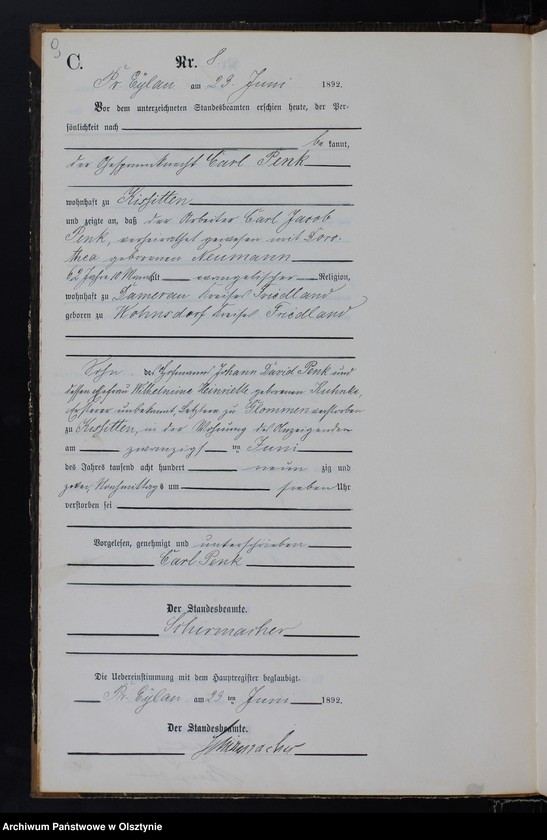 9
C. Nr. 8
Pr. Eylau am 23. Juni 1892.
Vor dem unterzeichneten Standesbeamten erschien heute, der Per-
sönlichkeit nach
be kannt,
der Gespannknecht Carl Penk
wohnhaft zu Kissitten
und zeigte an, daß der Arbeiter Carl Jacob
Penk, verheirathet gewesen mit Doro-
thea geborenen Neumann
62 Jahre 10 Monat alt evangelischer Religion,
wohnhaft zu Damerau Kreises Friedland
geboren zu Wohnsdorf Kreises Friedland
Sohn des Hofmanns Johann David Penk und
dessen Ehefrau Wilhelmine Henriette geborenen Kuhnke,
Ersterer unbekannt, Letztere zu Glommen verstorben
zu Kissitten, in der Wohnung des Anzeigenden
am zwanzigsten Juni
des Jahres tausend acht hundert neun zig und
zwei, Nachmittags um sieben Uhr
verstorben sei
Vorgelesen, genehmigt und unterschrieben
Carl Penk
Der Standesbeamte.
Schirmacher
Die Uebereinstimmung mit dem Hauptregister beglaubigt.
Pr. Eylau am 23 ten Juni 1892.
Der Standesbeamte.
Schirmacher
Archiwum Państwowe w Olsztynie